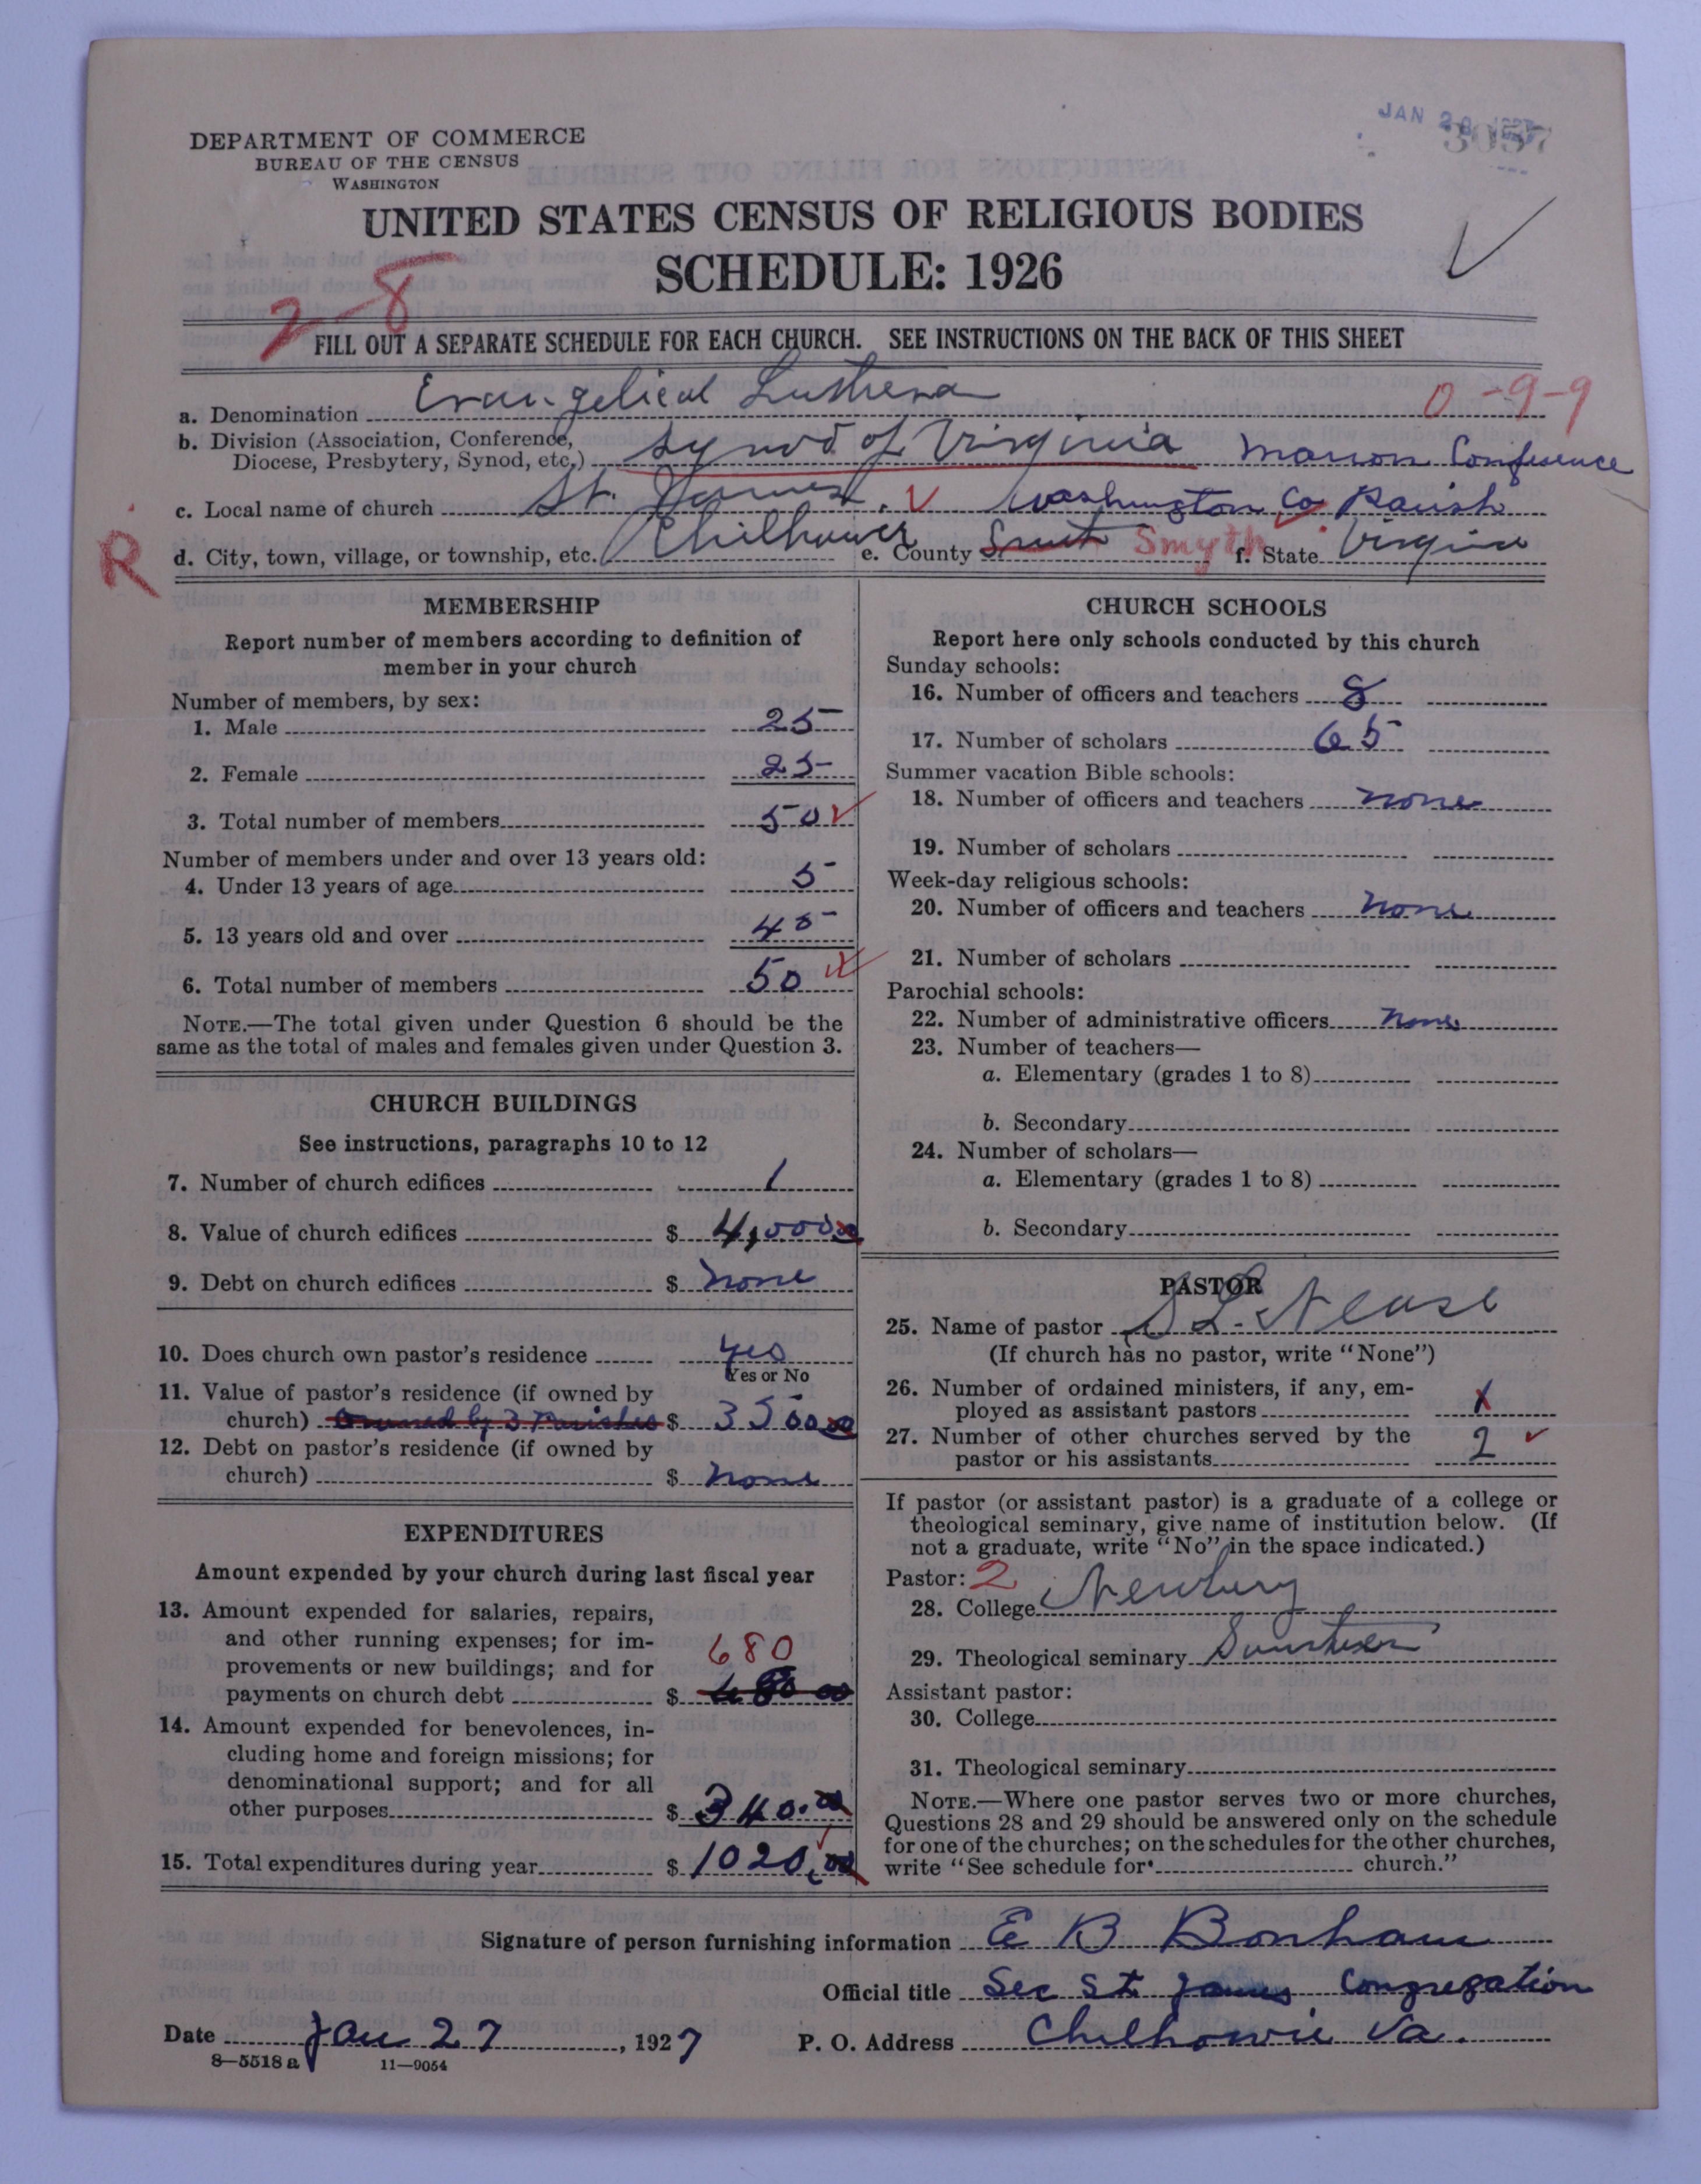 JAN 28 1927
3057
DEPARTMENT OF COMMERCE
BUREAU OF THE CENSUS
WASHINGTON
UNITED STATES CENSUS OF RELIGIOUS BODIES
SCHEDULE: 1926
2-8
FILL OUT A SEPARATE SCHEDULE FOR EACH CHURCH. SEE INSTRUCTIONS ON THE BACK OF THIS SHEET
a. Denomination Evangelical Lutheran 0-9-9
b. Division (Association, Conference, Diocese, Presbytery, Synod, etc.) Synod of Virginia Marion Conference
c. Local name of church St. James, Washington Co Parish
R
d. City, town, village, or township, etc. Chilhowie e. County Smith Smyth f. State Virginia
MEMBERSHIP
Report number of members according to definition of
member in your church
Number of members, by sex:
1. Male 25
2. Female 25
3. Total number of members 50
Number of members under and over 13 years old:
4. Under 13 years of age 5
5. 13 years old and over 45
6. Total number of members 50
NOTE.—The total given under Question 6 should be the
same as the total of males and females given under Question 3.
CHURCH BUILDINGS
See instructions, paragraphs 10 to 12
7. Number of church edifices 1
8. Value of church edifices $ 4,000 00
9. Debt on church edifices $ none
10. Does church own pastor's residence yes
Yes or No
11. Value of pastor's residence (if owned by
church) Owned by 3 Parishes $ 3500 00
12. Debt on pastor's residence (if owned by
church) $ none
EXPENDITURES
Amount expended by your church during last fiscal year
13. Amount expended for salaries, repairs,
and other running expenses; for im-
provements or new buildings; and for 680
payments on church debt $ 680 00
14. Amount expended for benevolences, in-
cluding home and foreign missions; for
denominational support; and for all
other purposes $ 340.00
15. Total expenditures during year $ 1020,00
CHURCH SCHOOLS
Report here only schools conducted by this church
Sunday schools:
16. Number of officers and teachers 8
17. Number of scholars 65
Summer vacation Bible schools:
18. Number of officers and teachers none
19. Number of scholars
Week-day religious schools:
20. Number of officers and teachers none
21. Number of scholars
Parochial schools:
22. Number of administrative officers none
23. Number of teachers—
a. Elementary (grades 1 to 8)
b. Secondary
24. Number of scholars—
a. Elementary (grades 1 to 8)
b. Secondary
PASTOR
25. Name of pastor S L. Nease
(If church has no pastor, write "None")
26. Number of ordained ministers, if any, em-
ployed as assistant pastors X
27. Number of other churches served by the
pastor or his assistants 2
If pastor (or assistant pastor) is a graduate of a college or
theological seminary, give name of institution below. (If
not a graduate, write "No" in the space indicated.)
Pastor: 2
28. College Newbury
29. Theological seminary Southern
Assistant pastor:
30. College
31. Theological seminary
NOTE.—Where one pastor serves two or more churches,
Questions 28 and 29 should be answered only on the schedule
for one of the churches; on the schedules for the other churches,
write "See schedule for church."
Signature of person furnishing information E B Bonham
Official title Sec St James Congregation
Date Jan 27, 1927 P. O. Address Chilhowie Va.
8—5518 a 11—9054